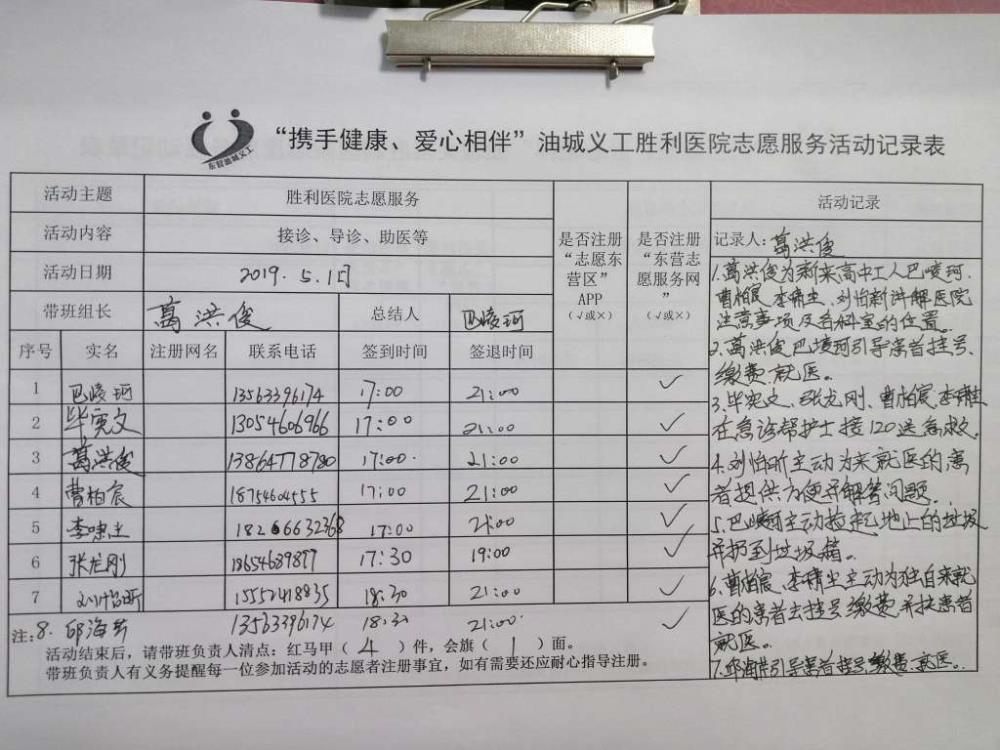 东营油城义工
“携手健康、爱心相伴”油城义工胜利医院志愿服务活动记录表
活动主题 胜利医院志愿服务
活动内容 接诊、导诊、助医等
活动日期 2019.5.1日
带班组长 葛洪俊 总结人 巴崚珂
是否注册“志愿东营区”APP（√或×）
是否注册“东营志愿服务网”（√或×）
序号 实名 注册网名 联系电话 签到时间 签退时间
1 巴崚珂 13563396174 17:00 21:00 ✓
2 毕宪文 13054606966 17:00 21:00 ✓
3 葛洪俊 13864778780 17:00 21:00 ✓
4 曹柏宸 18754604555 17:00 21:00 ✓
5 李啸尘 17:00 21:00 ✓
6 张龙刚 18654689877 17:30 19:00 ✓
7 刘怡昕 15552418835 18:30 21:00 ✓
8. 邱海 13563396174 18:30 21:00 ✓
注：
活动结束后，请带班负责人清点：红马甲（ 4 ）件，会旗（ 1 ）面。
带班负责人有义务提醒每一位参加活动的志愿者注册事宜，如有需要还应耐心指导注册。
活动记录
记录人：葛洪俊
1.葛洪俊为新来高中工人巴崚珂.
曹柏宸.李啸尘.刘怡昕讲解医院
注意事项及各科室的位置。
2.葛洪俊巴崚珂引导患者挂号、
缴费.就医。
3.毕宪文、张龙刚、曹柏宸李啸尘
在急诊帮护士接120送急救.
4.刘怡昕主动为来就医的患
者提供方便并解答问题.
5.巴崚珂主动捡起地上的垃圾
并扔到垃圾箱。
6.曹柏宸、李啸尘主动为独自来就
医的患者去挂号缴费并扶患者
就医。
7.邱海引导患者挂号.缴费.就医.